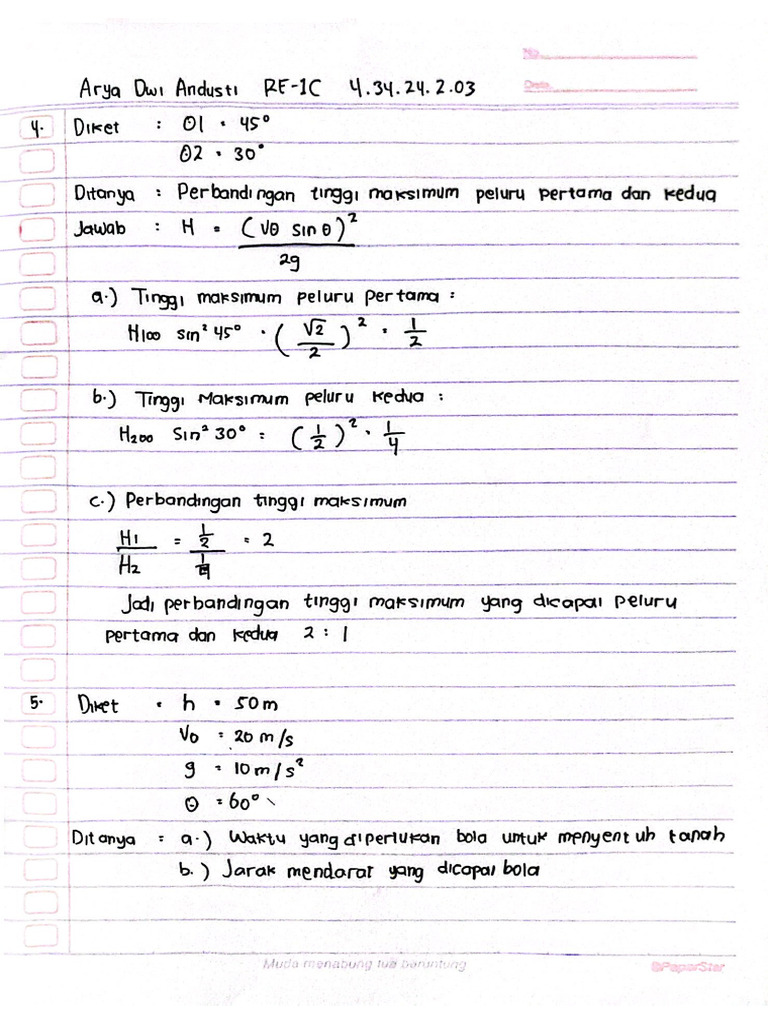 No.
Date.
Arya Dwi Andusti RE-1C 4.34.24.2.03
4. Diket : θ1 = 45°
θ2 = 30°
Ditanya : Perbandingan tinggi maksimum peluru pertama dan kedua
Jawab : H = (Vθ sin θ)²
2g
a.) Tinggi maksimum peluru pertama :
H1∞ sin² 45° = (√2/2)² = 1/2
b.) Tinggi Maksimum peluru kedua :
H2∞ Sin² 30° = (1/2)² = 1/4
c.) Perbandingan tinggi maksimum
H1/H2 = 1/2 / 1/4 = 2
Jadi perbandingan tinggi maksimum yang dicapai peluru
pertama dan kedua 2 : 1
5. Diket = h = 50m
Vo = 20 m/s
g = 10 m/s²
θ = 60°
Ditanya = a.) Waktu yang diperlukan bola untuk menyentuh tanah
b.) Jarak mendarat yang dicapai bola
Muda menabung tua beruntung
@PaperStar